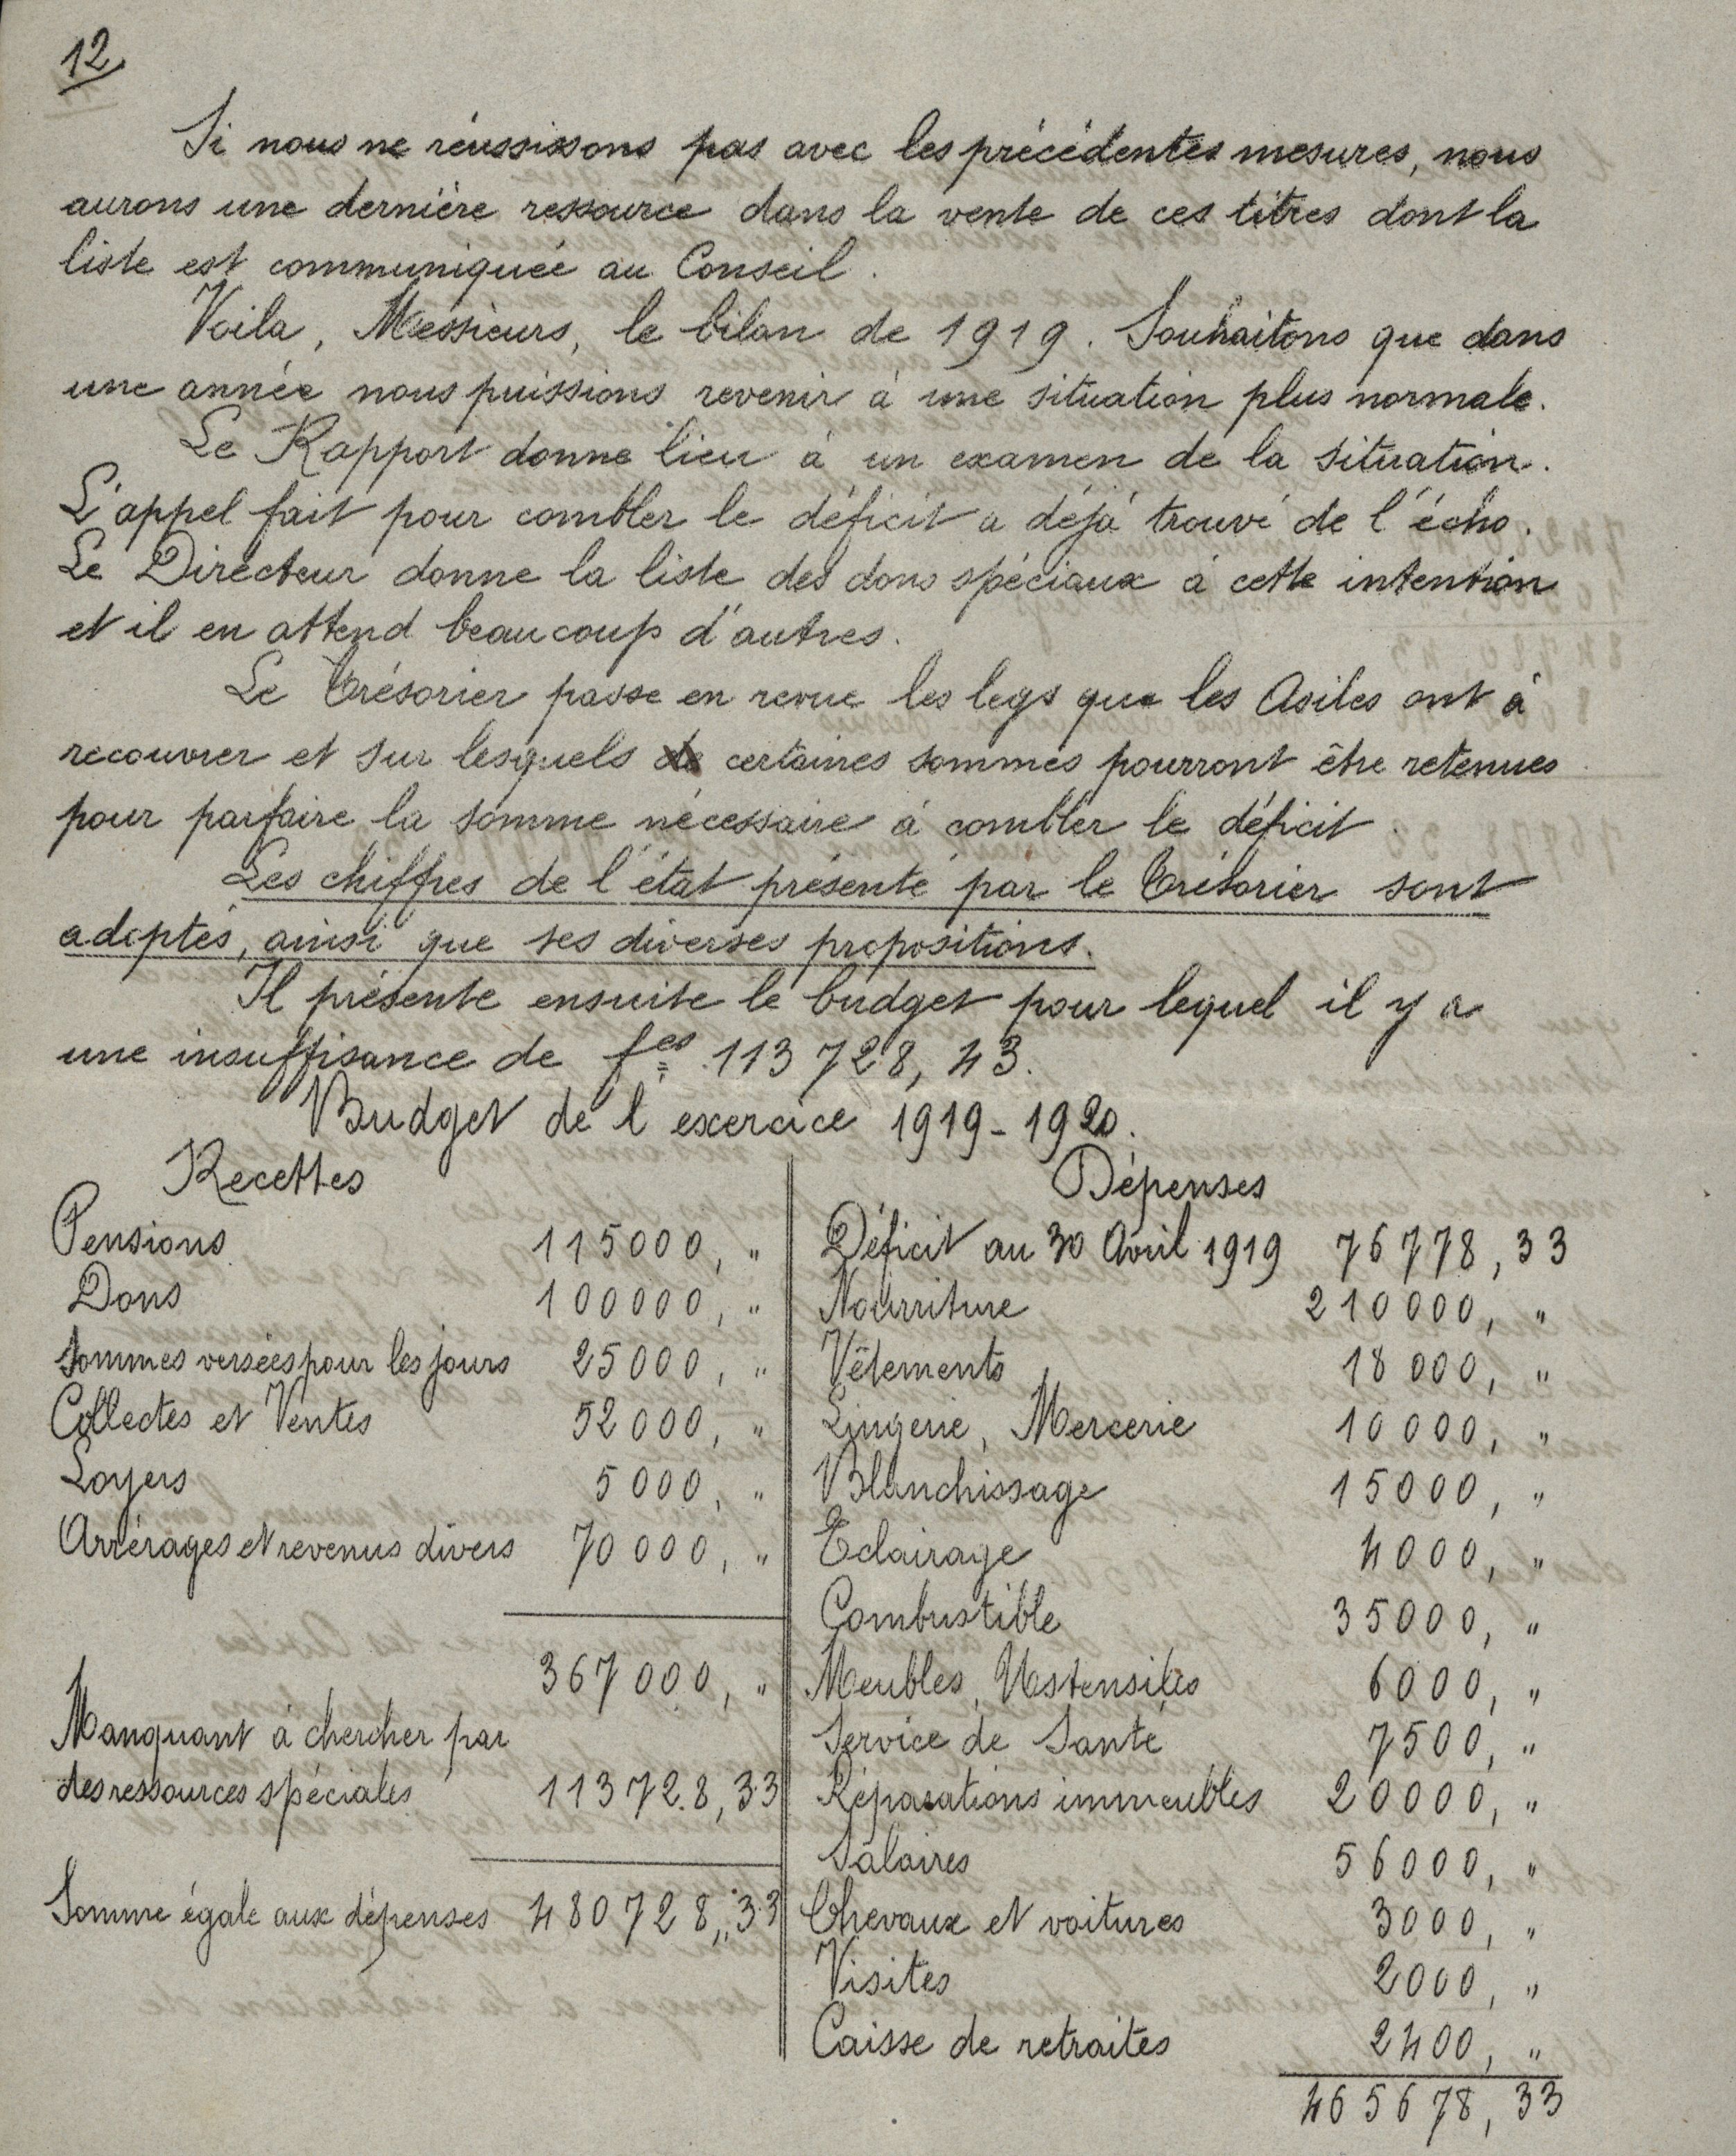 12
Si nous ne réussissons pas avec les précédentes mesures, nous
aurons une dernière ressource dans la vente de ces titres dont la
liste est communiquée au Conseil.
Voila, Messieurs, le bilan de 1919. Souhaitons que dans
une année nous puissions revenir à une situation plus normale.
Le Rapport donne lieu à un examen de la situation.
L'appel fait pour combler le déficit a déjà trouvé de l'écho.
Le Directeur donne la liste des dons spéciaux à cette intention
et il en attend beaucoup d'autres.
Le Trésorier passe en revue les legs que les Asiles ont à
recouvrer et sur lesquels certaines sommes pourront être retenues
pour parfaire la somme nécessaire à combler le déficit.
Les chiffres de l'état présenté par le Trésorier sont
adoptés, ainsi que ses diverses propositions.
Il présente ensuite le budget pour lequel il y a
une insuffisance de fcs 113 728, 43.
Budget de l'exercice 1919-1920.
Recettes
Pensions 115000, "
Dons 100000, "
Sommes versées pour les jours 25000, "
Collectes et Ventes 52000, "
Loyers 5000, "
Arrérages et revenus divers 70000, "
367000, "
Manquant à chercher par
des ressources spéciales 113728, 33
Somme égale aux dépenses 480728, 33
Dépenses
Déficit au 30 Avril 1919 76778, 33
Nourriture 210000, "
Vêtements 18000, "
Lingerie, Mercerie 10000, "
Blanchissage 15000, "
Eclairage 4000, "
Combustible 35000, "
Meubles, Ustensiles 6000, "
Service de Santé 7500, "
Réparations immeubles 20000, "
Salaires 56000, "
Chevaux et voitures 3000, "
Visites 2000, "
Caisse de retraites 2400, "
465678, 33